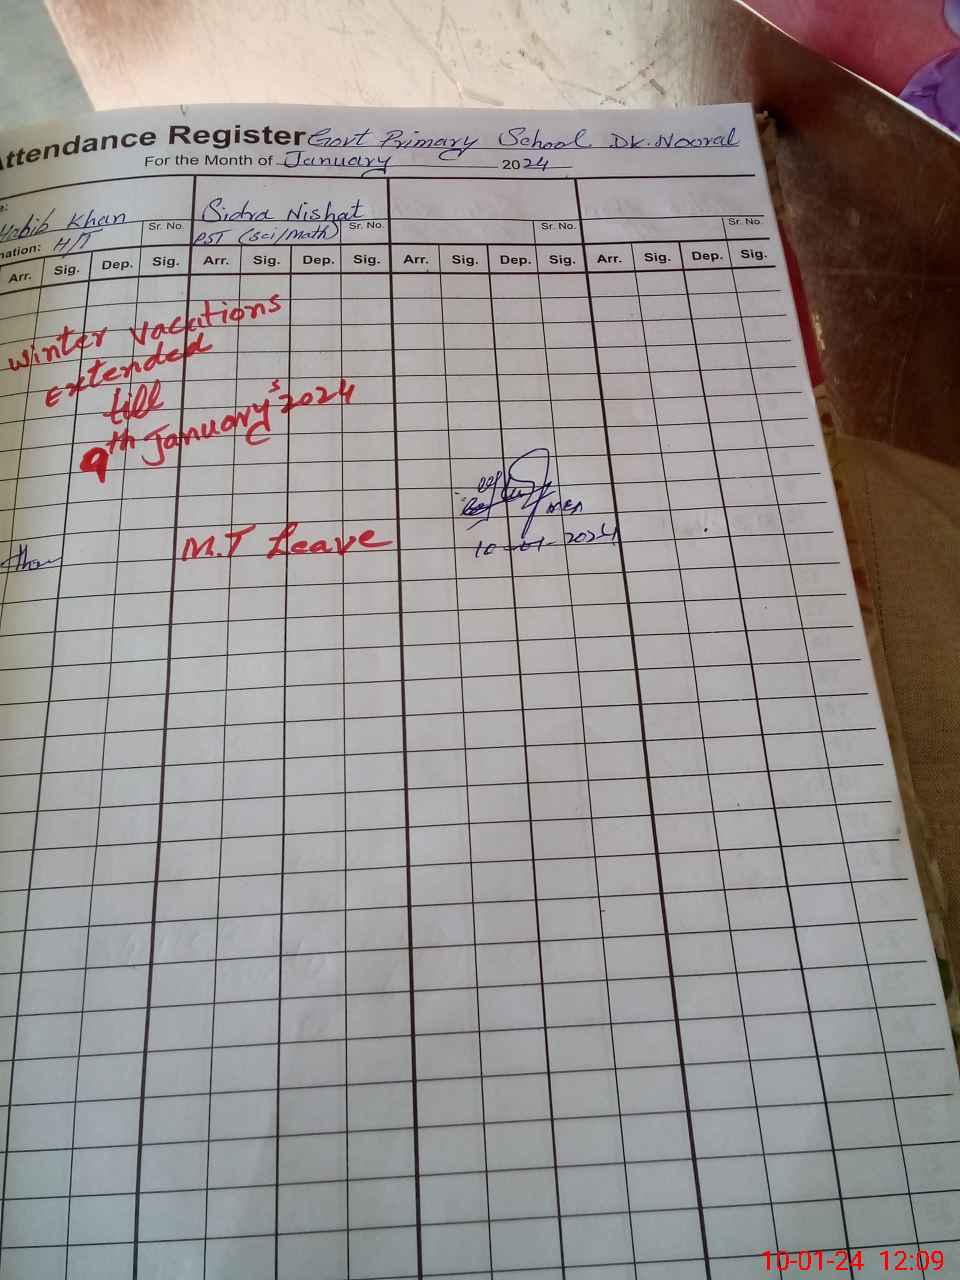 Attendance Register Govt Primary School DK. Nooral
For the Month of January 2024
Habib Khan Sidra Nishat
Sr. No. Sr. No. Sr. No. Sr. No.
H/T PST (Sci/Math)
Arr. Sig. Dep. Sig. Arr. Sig. Dep. Sig. Arr. Sig. Dep. Sig. Arr. Sig. Dep. Sig.
Winter Vacations
Extended
till
9th January's 2024
MEA
M.T Leave
10-01-2024
10-01-24 12:09